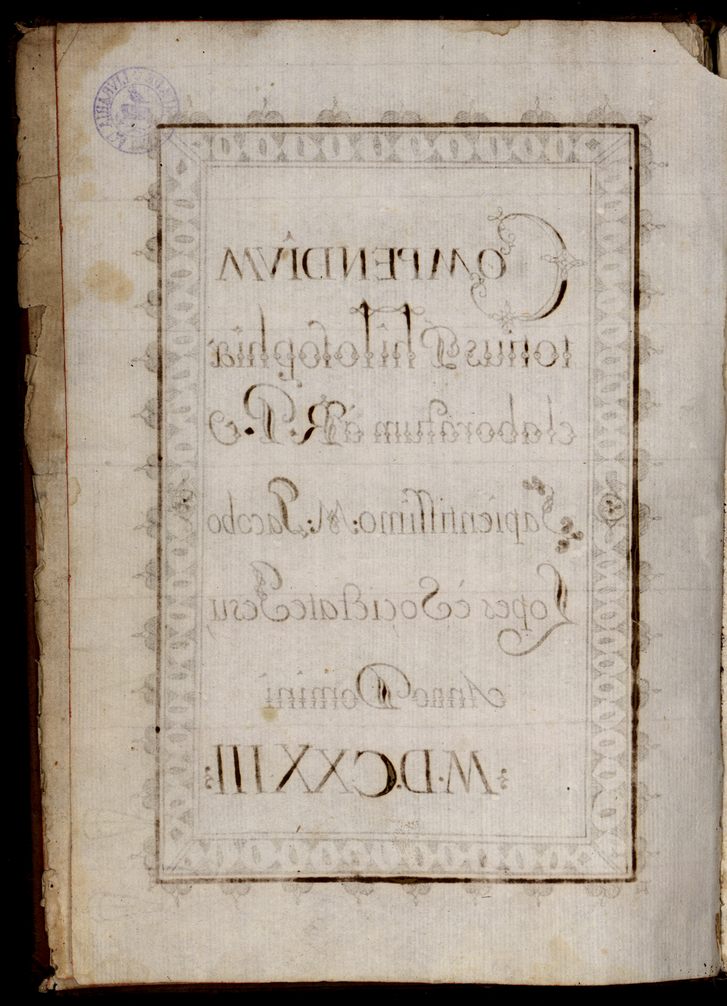 COMPENDIUM
totius Philosophiæ
elaboratum à R. P. ac
Sapientissimo: M: Jacobo
Lopes è Societate Jesu,
Anno Domini
:M·DCXXIII: